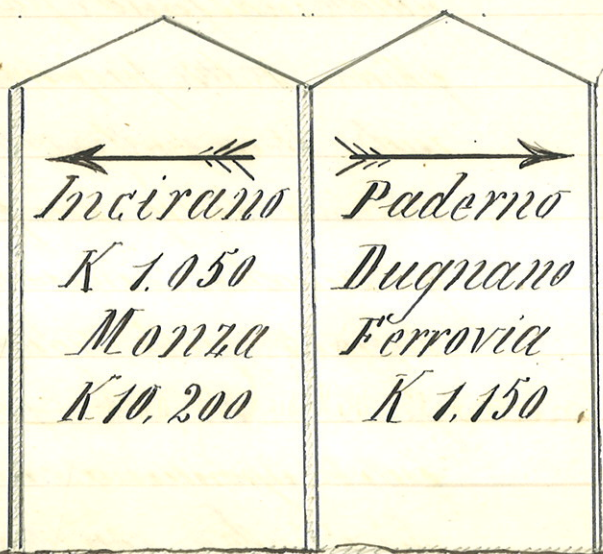 Incirano
K 1.050
Monza
K 10, 200
Paderno
Dugnano
Ferrovia
K 1,150